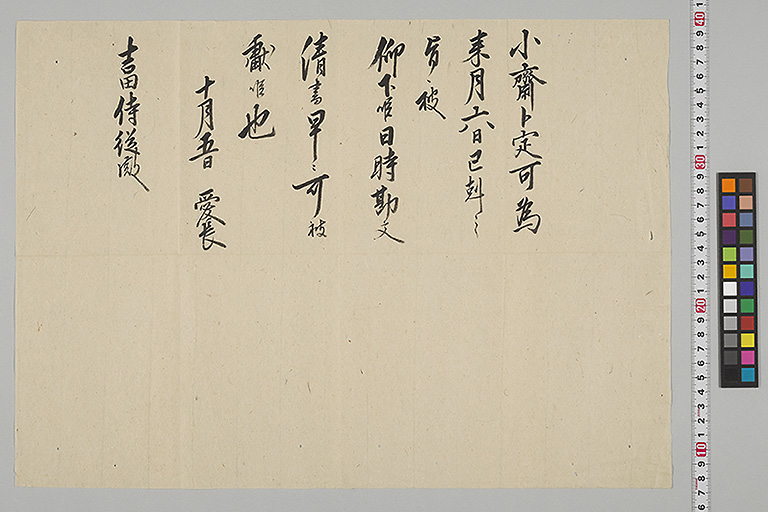 小齋卜定可為
来月六日巳剋之
旨、被
仰下候日時勘文
清書早々可被
献候也
十月五日 愛長
吉田侍従殿